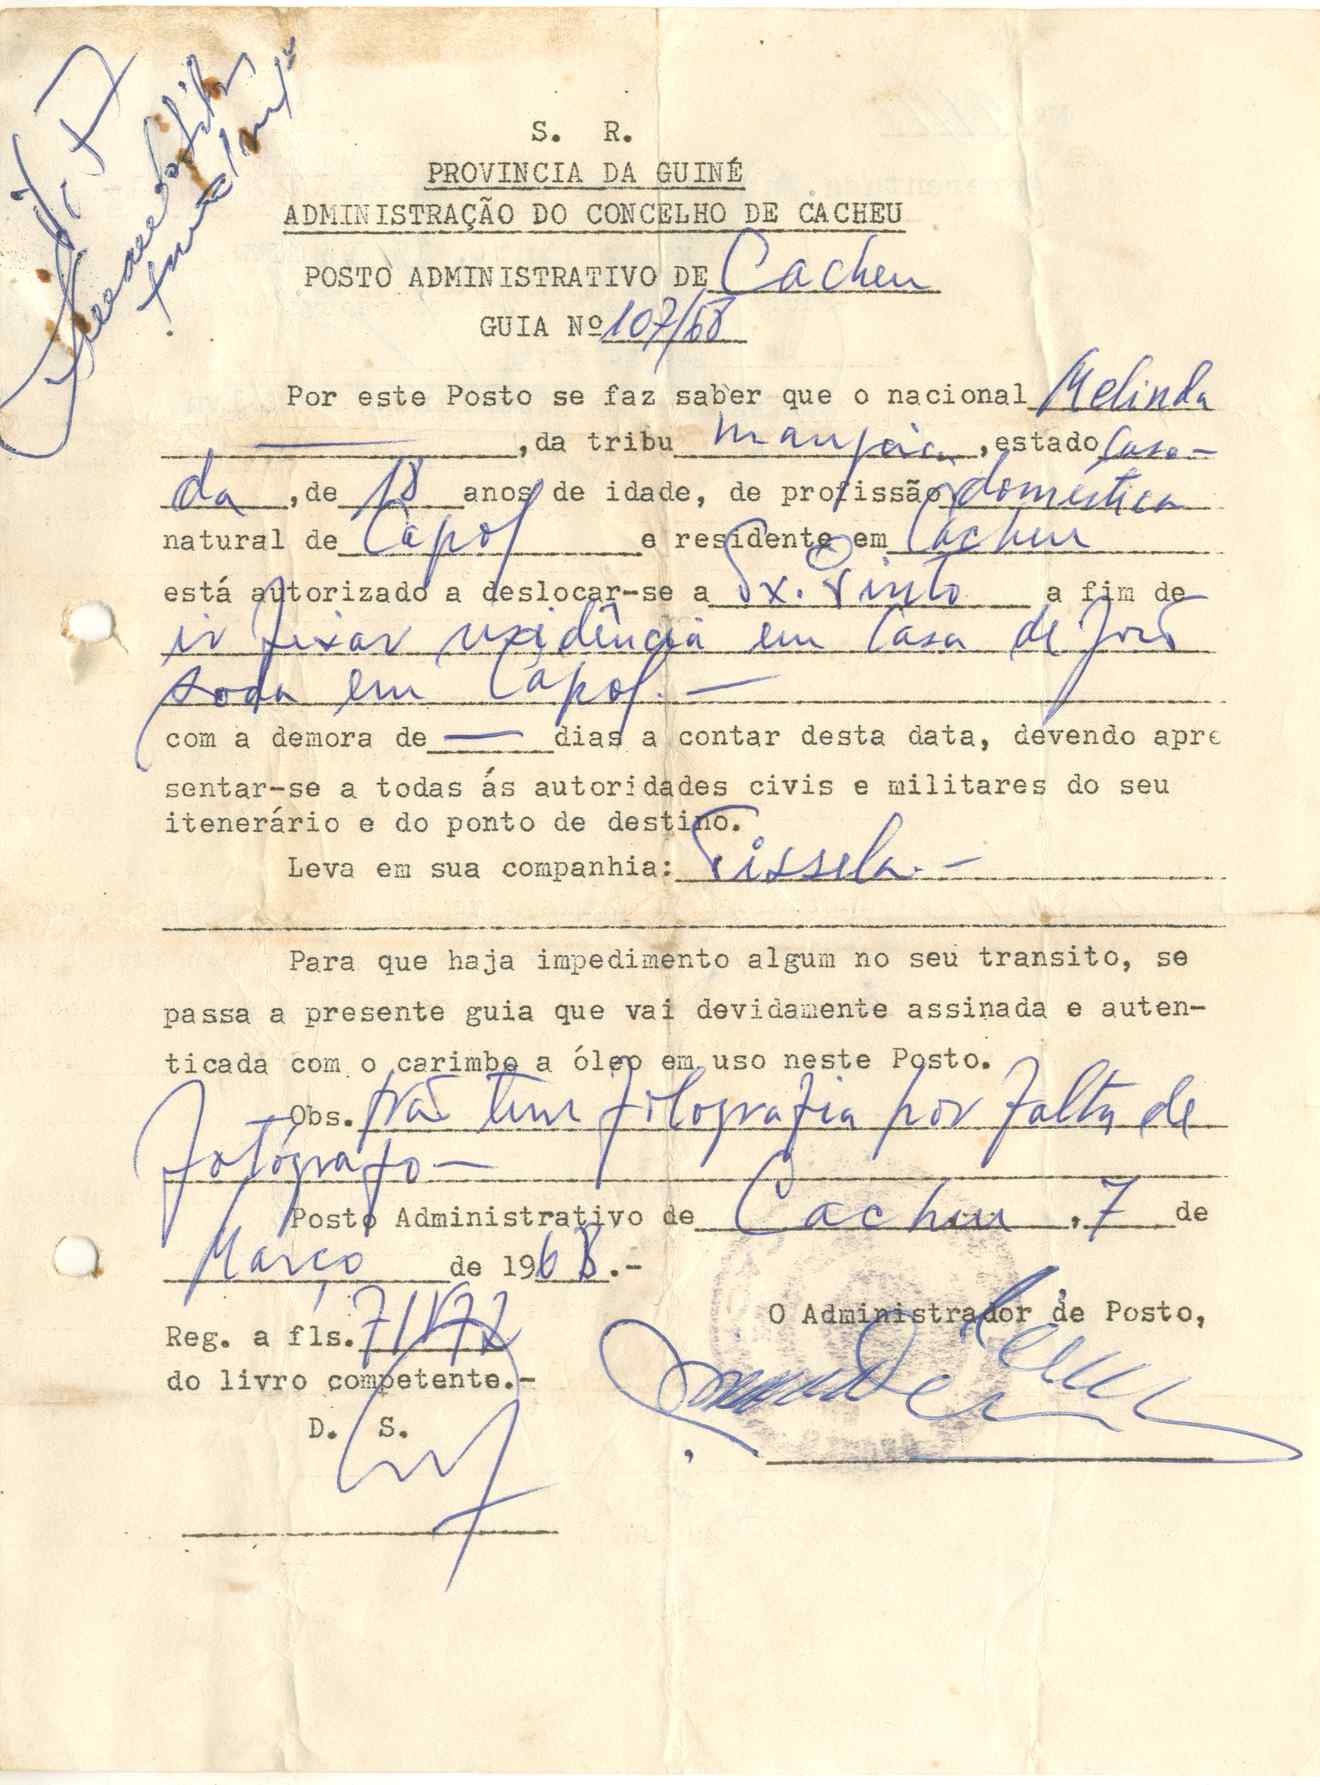 S. R.
PROVINCIA DA GUINÉ
ADMINISTRAÇÃO DO CONCELHO DE CACHEU
POSTO ADMINISTRATIVO DE Cacheu
GUIA Nº 107/68
Por este Posto se faz saber que o nacional Melinda
—, da tribu, estado Casa-
da, de 18 anos de idade, de profissão doméstica
natural de Capol e residente em Cacheu
está autorizado a deslocar-se a Tx. Pinto a fim de
ir fixar residência em Casa de João
Soda em Capol. —
com a demora de — dias a contar desta data, devendo apre
sentar-se a todas ás autoridades civis e militares do seu
itenerário e do ponto de destino.
Leva em sua companhia: Tissela. —
Para que haja impedimento algum no seu transito, se
passa a presente guia que vai devidamente assinada e auten-
ticada com o carimbo a óleo em uso neste Posto.
Obs. Não tem fotografia por falta de
fotógrafo —
Posto Administrativo de Cacheu, 7 de
Março de 1968.-
O Administrador de Posto,
Reg. a fls. 71/72
do livro competente.-
D. S.